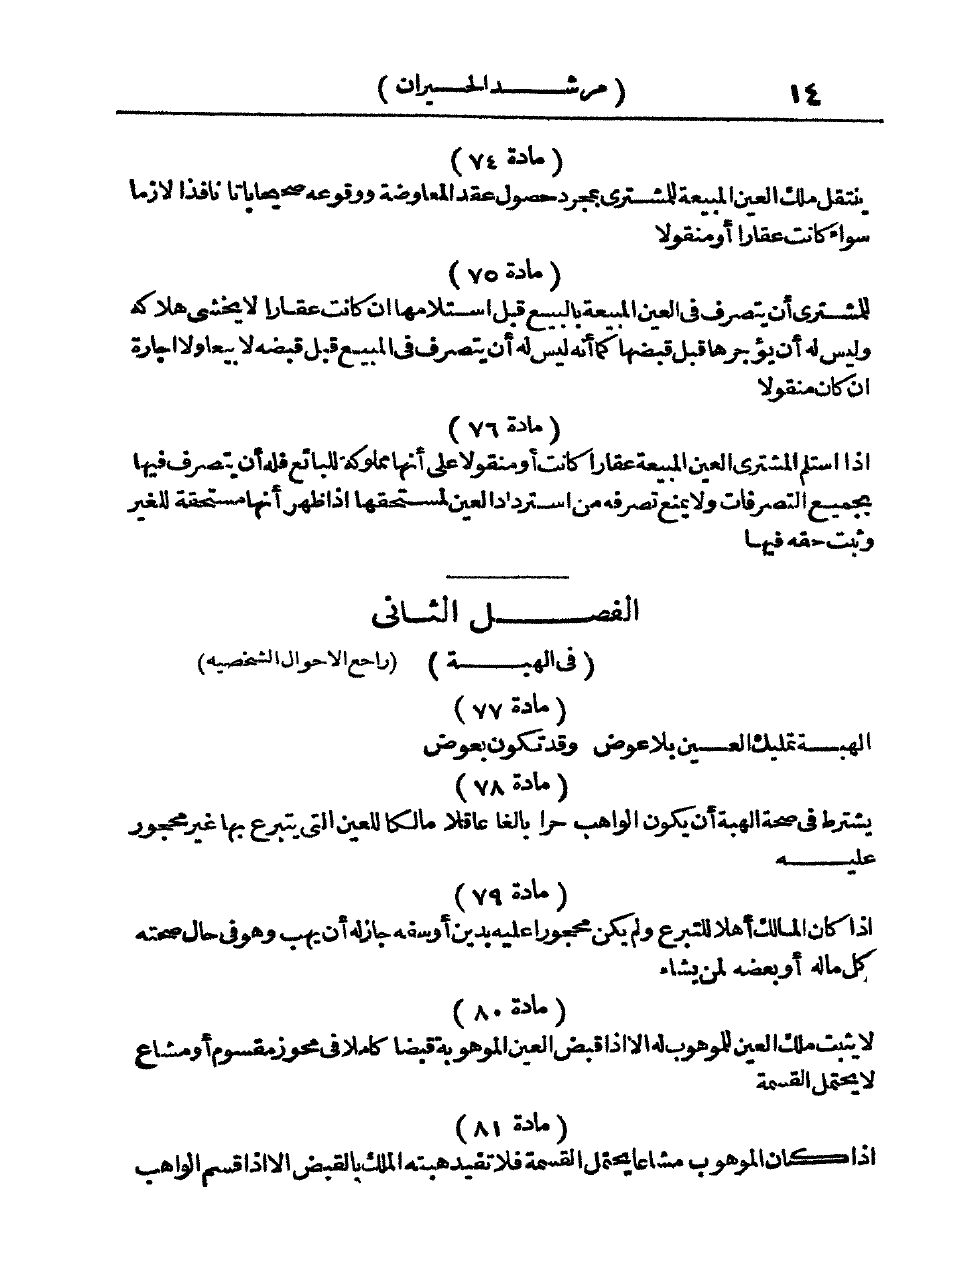 ١٤ ( مرشد الحيران )
( مادة ٧٤ )
ينتقل ملك العين المبيعة للمشترى بمجرد حصول عقد المعاوضة ووقوعه صحيحا باتا نافذا لازما
سواء كانت عقارا أو منقولا
( مادة ٧٥ )
للمشترى أن يتصرف فى العين المبيعة بالبيع قبل استلامها ان كانت عقارا لا يخشى هلاكه
وليس له أن يؤجرها قبل قبضها كما أنه ليس له أن يتصرف فى المبيع قبل قبضه لا بيعا ولا اجارة
ان كان منقولا
( مادة ٧٦ )
اذا استلم المشترى العين المبيعة عقارا كانت أو منقولا على أنها مملوكة للبائع فله أن يتصرف فيها
بجميع التصرفات ولا يمنع تصرفه من استرداد العين لمستحقها اذا ظهر أنها مستحقة للغير
وثبت حقه فيها
الفصل الثانى
( فى الهبة ) (راجع الاحوال الشخصيه)
( مادة ٧٧ )
الهبة تمليك العين بلا عوض وقد تكون بعوض
( مادة ٧٨ )
يشترط فى صحة الهبة أن يكون الواهب حرا بالغا عاقلا مالكا للعين التى يتبرع بها غير محجور
عليه
( مادة ٧٩ )
اذا كان المالك أهلا للتبرع ولم يكن محجورا عليه بدين أو سفه جاز له أن يهب وهو فى حال صحته
كل ماله أو بعضه لمن يشاء
( مادة ٨٠ )
لا يثبت ملك العين للموهوب له الا اذا قبض العين الموهوبة قبضا كاملا فى محوز مقسوم أو مشاع
لا يحتمل القسمة
( مادة ٨١ )
اذا كان الموهوب مشاعا يحتمل القسمة فلا تفيد هبته الملك بالقبض الا اذا قسم الواهب